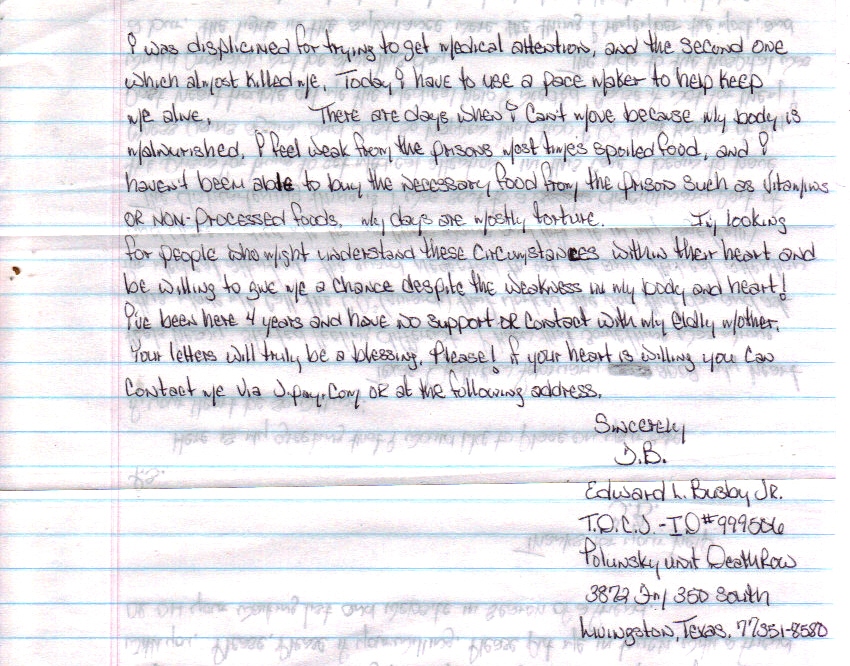 I was displicined for trying to get medical attention, and the second one
which almost killed me. Today I have to use a pace maker to help keep
me alive. There are days when I can't move because my body is
malnurished. I feel weak from the prisons most times spoiled food, and I
haven't been able to buy the necessary food from the prison such as vitamins
OR NON-Processed foods. my days are mostly torture. I'm looking
for people who might understand these circumstances within their heart and
be willing to give me a chance despite the weakness in my body and heart!
I've been here 4 years and have no support OR contact with my elally mother.
Your letters will truly be a blessing. Please! if your heart is willing you can
contact me via J.pay.com OR at the following address.
Sincerely
J.B.
Edward L. Busby JR.
T.D.C.J.-ID#999506
Polunsky unit Death Row
3872 Fm 350 South
Livingston, Texas. 77351-8580